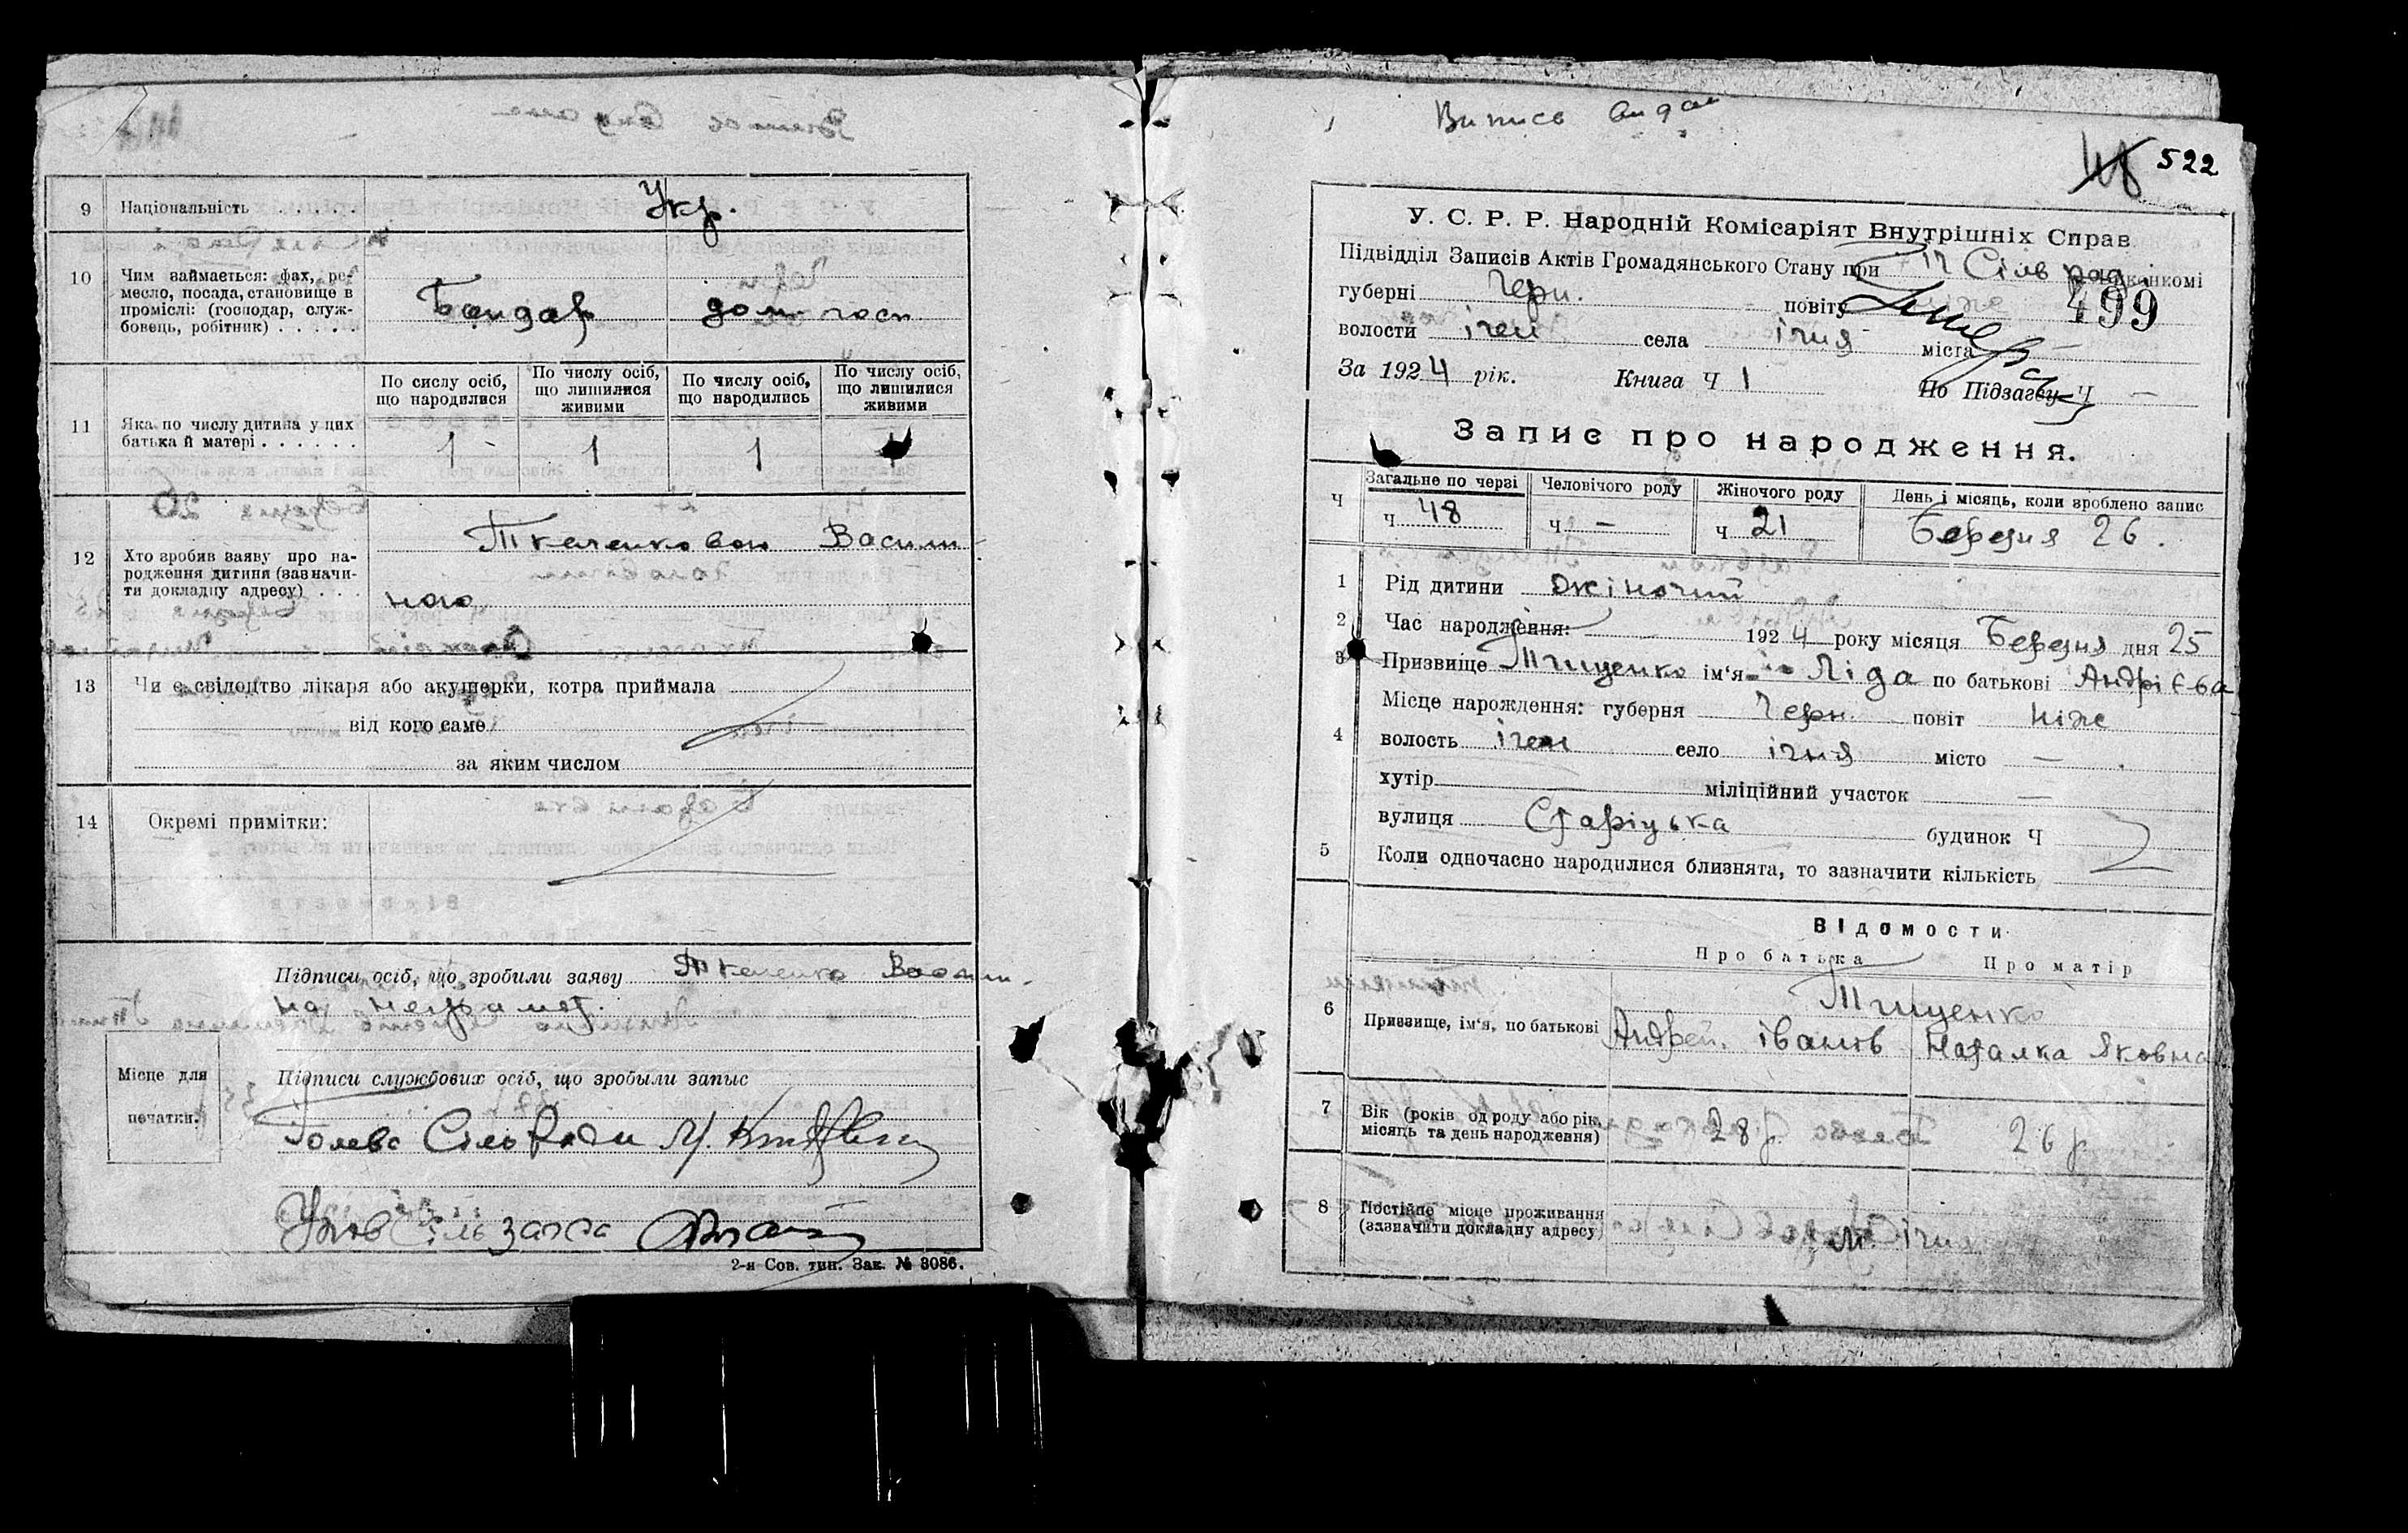 9 Національність . . . . . . Укр.
10 Чим займається: фах, ре-
месло, посада, становище в
промислі: (господар, служ-
бовець, робітник) . . . . .
Бондар дом госп
По сислу осіб, що народилися
По числу осіб, що лишилися живими
По числу осіб, що народились
По числу осіб, що лишилися живими
11 Яка по числу дитина у цих
батька й матері . . . . . . 1 1 1
12 Хто зробив заяву про на-
родження дитини (зазначи-
ти докладну адресу) . . .
Ткаченковою Васили-
ною
13 Чи є свілоцтво лікаря або акушерки, котра приймала
від кого саме
за яким числом
14 Окремі примітки:
Підписи осіб, що зробили заяву Ткаченко Васили-
на неграмот.
Місце для
печатки.
Підписи службових осіб, що зробыли запыс
Голова Сільради М.
2-я Сов. тип. Зак. № 3086.
Випись видан
48 522
У. С. Р. Р. Народній Комісаріят Внутрішніх Справ
Підвідділ Записів Актів Громадянського Стану при Сільрад
губерні Черн. повіту
499
волости ічен села ічня міста —
За 1924 рік. Книга Ч 1 По Підзагсу Ч —
Запис про народження.
Ч Загальне по черзі Человічого роду Жіночого роду День і місяць, коли зроблено запис
Ч 48 Ч — Ч 21 Березня 26.
1 Рід дитини жіночий
2 Час народження: 1924 року місяця Березня дня 25
3 Призвище Тищенко ім'я Ліда по батькові Андрієва
Місце нарождення: губерня Черн. повіт Ніже
4 волость ічен село ічня місто —
хутір міліційний участок —
вулиця Старіцька будинок Ч
5 Коли одночасно народилися близнята, то зазначити кількість
Відомости
Про батька Про матір
Тищенко
6 Призвище, ім'я, по батькові Андрей. іванів Наталка Яковна
7 Вік (років од роду або рік,
місяць та день народження) 28 р. 26 р
8 Постійне місце проживання
(зазначити докладну адресу) м. ічня